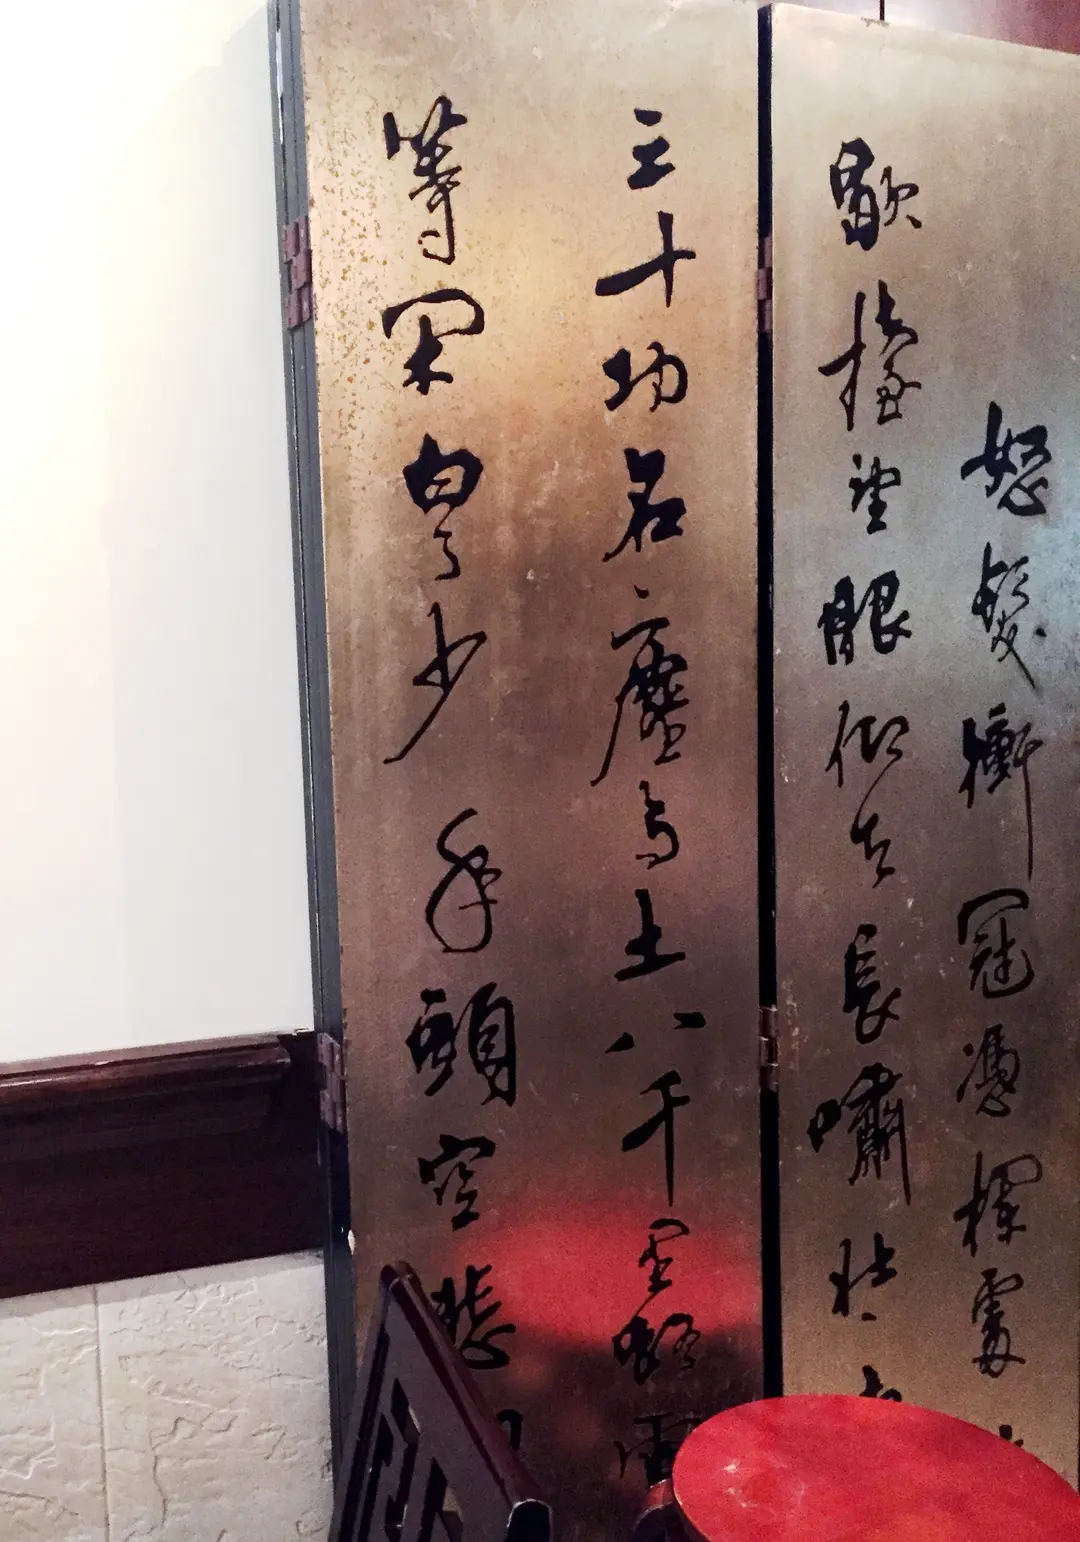 怒髮衝冠憑欄處
歇擡望眼仰天長嘯壯
三十功名塵与土八千里路雲
等閑白了少年頭空悲